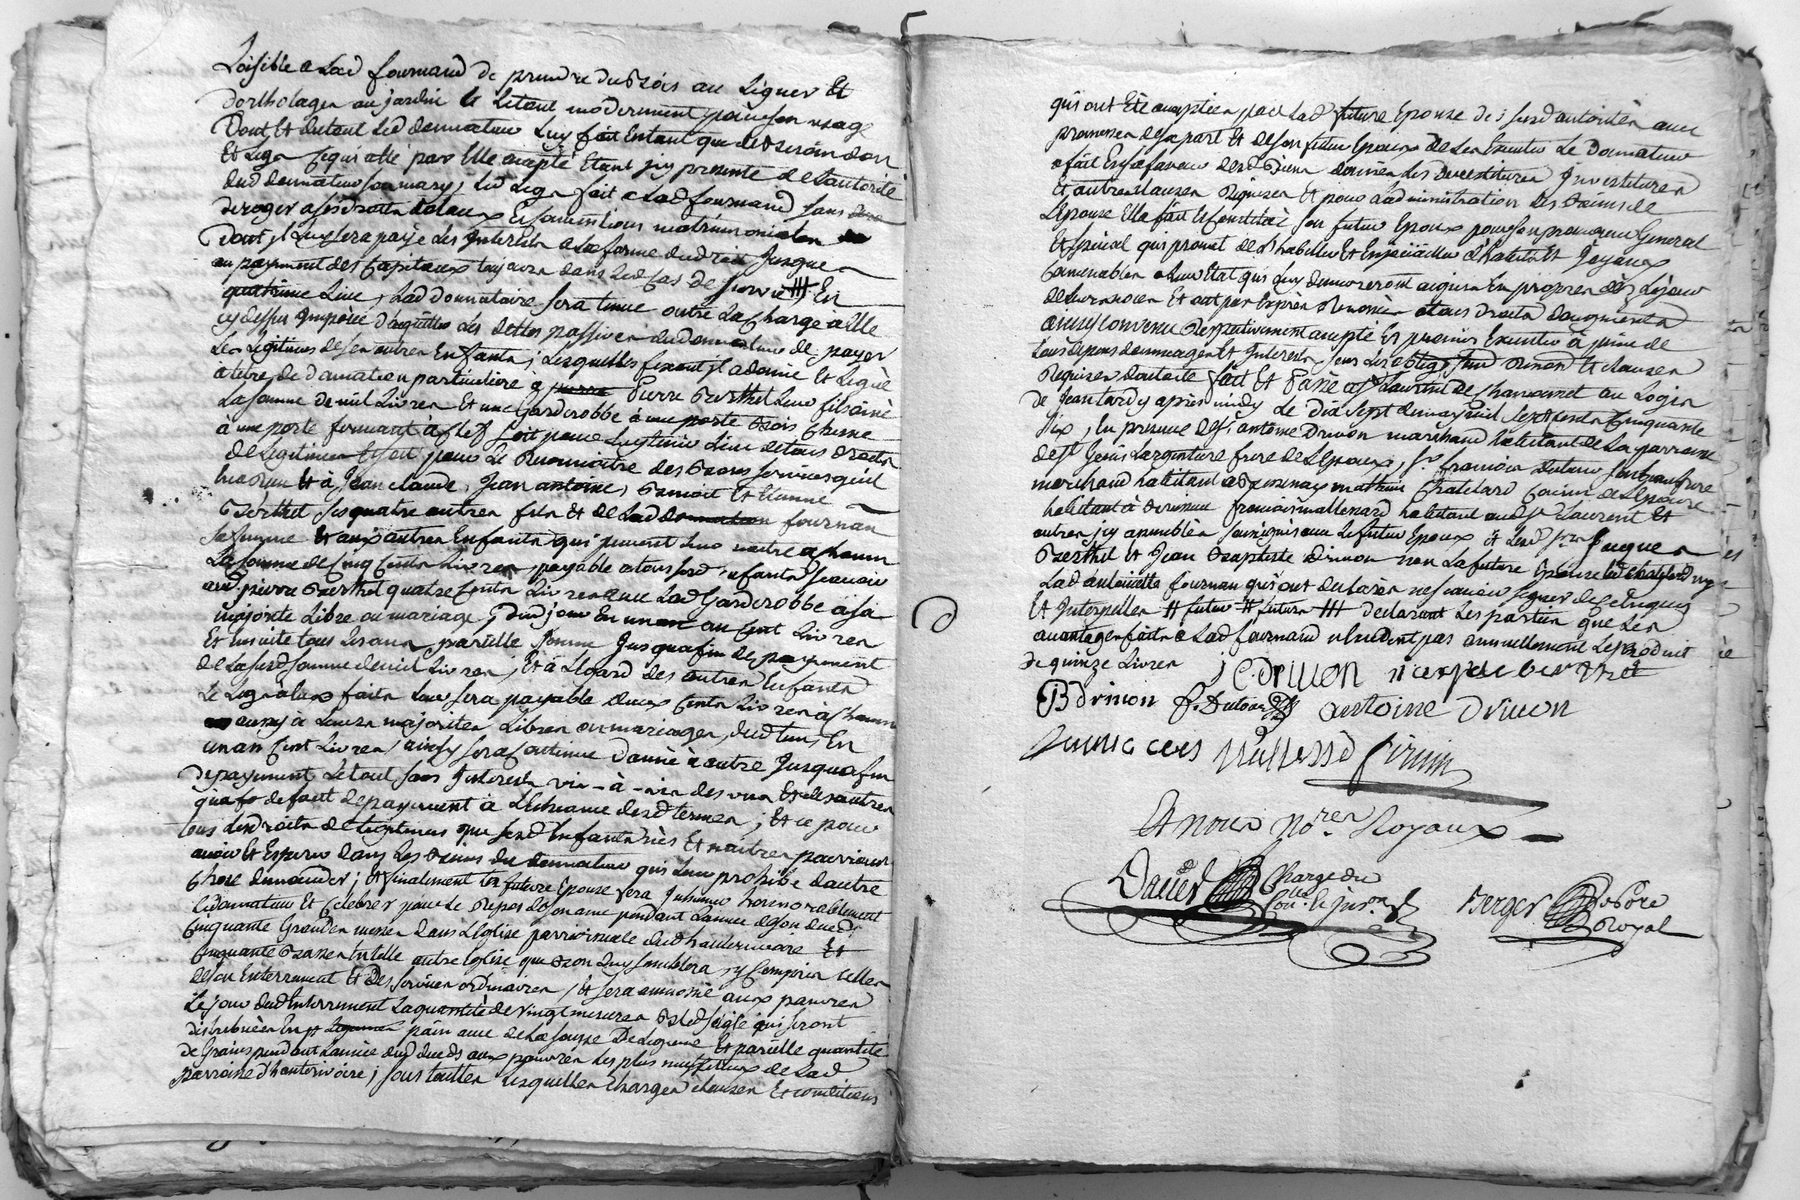 Loisible a Lad fournand de prendre du Bois au Ligner Et
dortholager au jardin Le Letout moderement pour son usage
Dont Et dutout Led donnateur Luy fait Entant que de Besoin don
Et Legs ce qui a été par Elle accepté Etant icy presente de Lautorité
dud donnateur son mary, Led Legs fait a Lad fournand sans
deroger a ses droits dotaux Et conventions matrimoniales
Dont il Luy sera payé Les Interets a La forme du droit Jusques
au payement des Capitaux toujours dans Led cas de survie ### En
quatrieme Lieu, Lad donnataire sera tenue outre La Charge a Elle
cy dessus Imposée d'acquitter Les dettes passives du donnateur de payer
Les Legitimes de ses autres Enfants, Lesquelles fixant il a donné Et Legué
a titre de donation particuliere à Pierre Berthet Leur fils ainé
La somme de mil Livres Et une Garderobbe Bois Chesne
à une porte fermant a Clef soit pour Luy tenir Lieu de tous droits
de Legitimes soit pour Le des Bons services quil
Et à Jean claude, Jean antoine, Benoit Et Etienne
Berthet ses quatre autres fils Et de Lad fournan
sa femme Et aux autres Enfants qui peuvent Leur naitre a chacun
La somme de Cinq Cents Livres payable a tous sesd Enfants scavoir
aud pierre Berthet quatre Cents Livres avec Lad Garderobbe a sa
majorité Libre ou mariage, dud jour En un an Cent Livres
Et Ensuite tous Les ans pareille somme Jusqua fin de payement
de La susd somme de mil Livres, Et à L'Egard des autres Enfants
Le Legs a Eux fait Leur sera payable deux Cents Livres à chacun
aussy à Leurs majorites Libres ou mariages, dud tems En
un an Cent Livres, ainsy sera Continué d'année à autre Jusqua fin
de payement Le tout sans Interets vis-à-vis des uns Et des autres
qua fo de faut de payement a L'Echeance desd termes; Et ce pour
tous Les droits de Legitimes que sesd Enfants nés Et naitres pourroient
avoir Et Esperer dans Les Biens du donnateur qui Leur prohibe d'autre
Chose demander; Et finalement La future Epouse fera Inhumer honnorablement
Le donnateur Et Celebrer pour Le Repos de son ame pendant L'année de son deceds
Cinquante Grandes messes dans L'Eglise parroissiale dud hauterivoire Et
Cinquante Basses En telle autre Eglise que Bon Luy semblera, y Compris Celles
de son Enterrement Et des services ordinaires, Et sera aumoné aux pauvres
Le jour dud Enterrement La quantité de vingt mesures Bled seigle qui seront
distribuées En pain avec de La souppe De Legume Et pareille quantité
de Grains pendant Lannée dud deceds aux pauvres Les plus necessiteux de Lad
Parroisse d'hauterivoire; sous toutes Lesquelles Charges clauses Et conditions
qui ont Eté acceptées par Lad future Epouse de sesd autorités avec
promesses de sa part Et de son futur Epoux de Les Executer Le Donnateur
a fait En sa faveur desd Biens donnés Les devestitures Investitures
Et autres clauses Requises Et pour L'administration des Biens de
L'Epouse Elle fait Et Constitue son futur Epoux pour son procureur General
Et special qui promet de L'habiller Et Enjoailler d'habits Et Joyaux
Convenables a Leur Etat qui Luy demeureront acquis En propres dez Le jour
de Leurs noces Et ont par Exprès Renoncé a tous droits d'augments
ainsy convenu Respectivement accepté Et promis Executer à peine de
tous depens dommages Et Interets, sous Les oblig. sub. Renon. Et clauses
Requises dont acte fait Et Passé a St Laurent de Chamousset au Logis
de Jean tardy après midy Le Dix Sept de may mil Sept Cents Cinquante
Six, En presence de Sr antoine Drivon marchand habitant de La parroisse
de St Genis Largentiere frere de L'Epoux, Sr francois Dutour son beaufrere
marchand habitant a Mathieu Chatelard Cousin de L'Epouse
habitant à francois mallessard habitant aud St Laurent Et
autres icy assemblés soussignés avec Le futur Epoux Et Lesd Srs Jacques
Berthet Et Jean Baptiste drivon non La future Epouse Led Chatelard ny
Lad antoinette fournan qui ont declarés ne scavoir signer de Ce Enquis
Et Interpelles # futur ## future ### declarant Les parties que Les
avantages faits a Lad fournand n'Excedent pas annuellement Le produit
de quinze Livres
j C drivon j acque berthet
JB drivon f. Dutour antoine drivon
Mallessard
Et nous nores Royaux
Chargé du
Berger
Royal